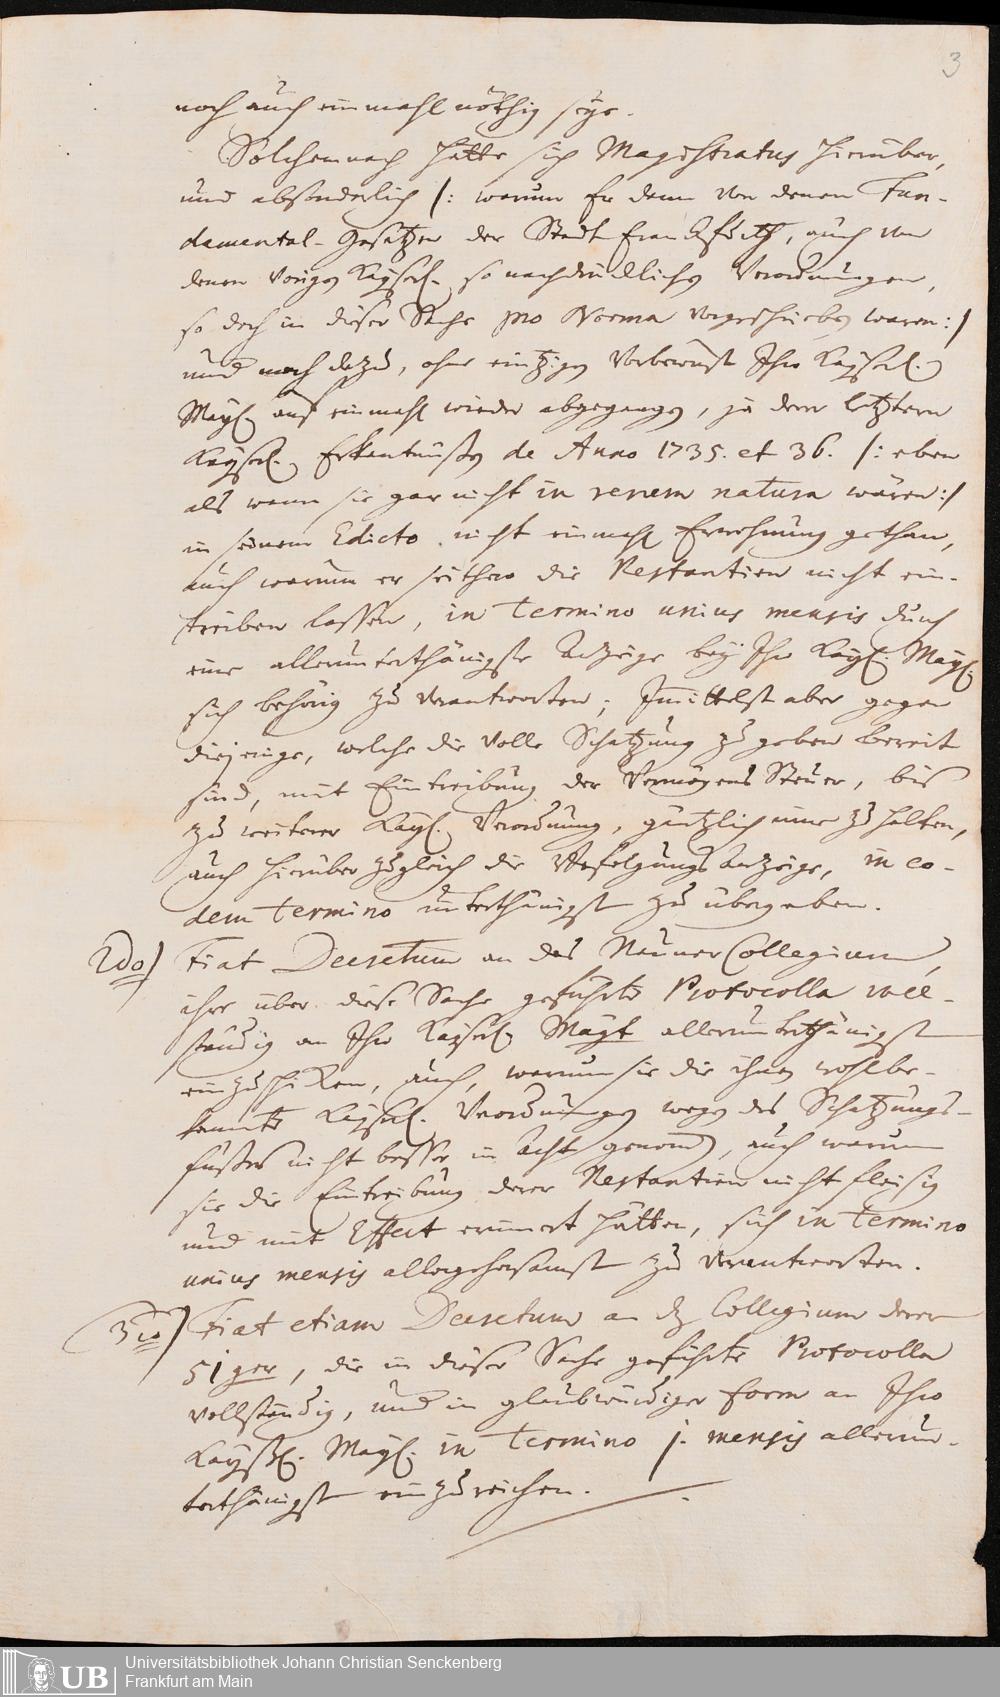 3
noch auch einmahl nöthig seye.
Solchemnach hätte sich Magistratus hierüber,
und absonderlich /: warum Er denn von denen Fun-
damental-Gesätzen der Stadt Franckfurth, auch von
denen vorigen Kayserl. so nachdrücklichen Verordnungen,
so doch in dieser Sache pro Norma vorgeschrieben waren :/
und noch dazu, ohne eintzigen Vorbewust Ihro Kayserl.
Mayt. auf einmahl wieder abgegangen, ja deren letztern
Kayserl. Erkantnüßen de Anno 1735. et 36. /: eben
als wenn sie gar nicht in rerum natura wären :/
in seinem Edicto nicht einmahl Erwehnung gethan,
auch warum er seithero die Restantien nicht ein-
treiben lassen, in termino unius mensis durch
eine allerunterthänigste Anzeige bey Ihro Kayl. Mayt.
sich behörig zu verantworten; Immittelst aber gegen
diejenige, welche die volle Schatzung zu geben bereit
sind, mit Eintreibung der Vermögens Steuer, bis
zu weiterer Kayl. Verordnung, gäntzlich inne zu halten,
auch hierüber zugleich die Befolgungs Anzeige, in eo-
dem termino unterthänigst zu übergeben.
2do/ Fiat Decretum an das Neuner Collegium,
ihre über diese Sache geführte Protocolla voll-
ständig an Ihro Kayserl. Mayt. allerunterthänigst
einzuschicken, auch, warum sie die ihnen wohlbe-
kannte Kayserl. Verordnungen wegen des Schatzungs-
fußes nicht besser in Acht genommen, auch warum
sie die Eintreibung derer Restantien nicht fleisig
und mit Effect erinnert hätten, sich in termino
unius mensis allergehorsamst zu verantworten.
3io/ Fiat etiam Decretum an das Collegium derer
51ger, die in dieser Sache geführte Protocolla
vollständig, und in glaubwürdiger Form an Ihro
Kayserl. Mayt. in termino j. mensis allerun-
terthänigst einzureichen.
UB
Universitätsbibliothek Johann Christian Senckenberg
Frankfurt am Main